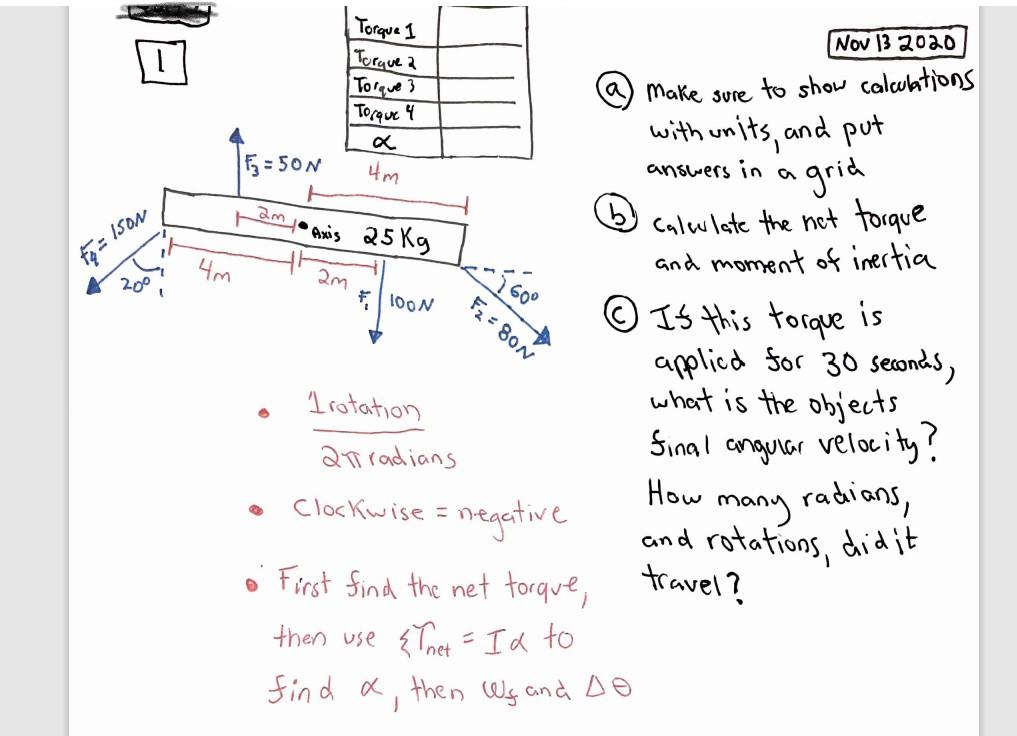 1
Torque 1
Torque 2
Torque 3
Torque 4
α
Nov 13 2020
F₃ = 50N
4m
F₄ = 150N
20°
2m
Axis
25 Kg
4m
2m
F₁
100N
60°
F₂ = 80N
ⓐ Make sure to show calculations
with units, and put
answers in a grid
ⓑ Calculate the net torque
and moment of inertia
ⓒ If this torque is
applied for 30 seconds,
what is the objects
final angular velocity?
How many radians,
and rotations, did it
travel?
• 1 rotation
2π radians
• Clockwise = negative
• First find the net torque,
then use ΣTnet = Iα to
find α, then ωf and Δθ